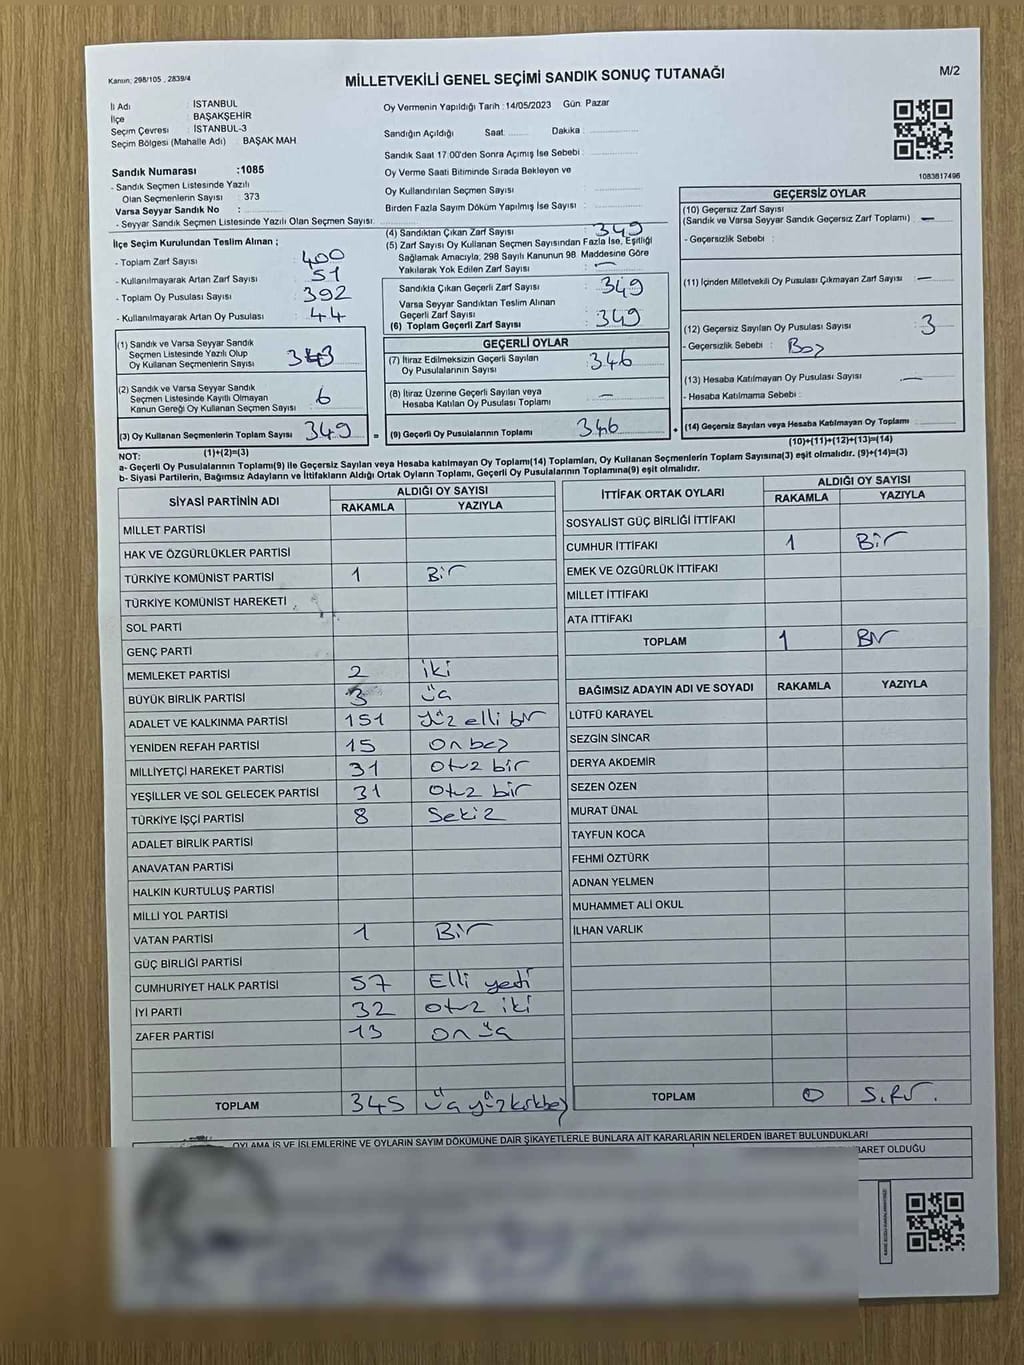 Kanun: 298/105 , 2839/4
MİLLETVEKİLİ GENEL SEÇİMİ SANDIK SONUÇ TUTANAĞI
M/2
İl Adı : İSTANBUL
İlçe BAŞAKŞEHİR
Seçim Çevresi : İSTANBUL-3
Seçim Bölgesi (Mahalle Adı) : BAŞAK MAH
Oy Vermenin Yapıldığı Tarih : 14/05/2023 Gün: Pazar
Sandığın Açıldığı Saat: Dakika :
Sandık Saat 17:00'den Sonra Açımış İse Sebebi :
Oy Verme Saati Bitiminde Sırada Bekleyen ve
Oy Kullandırılan Seçmen Sayısı :
Birden Fazla Sayım Döküm Yapılmış İse Sayısı :
1083617496
Sandık Numarası :1085
- Sandık Seçmen Listesinde Yazılı
Olan Seçmenlerin Sayısı : 373
Varsa Seyyar Sandık No :
- Seyyar Sandık Seçmen Listesinde Yazılı Olan Seçmen Sayısı:
İlçe Seçim Kurulundan Teslim Alınan ;
- Toplam Zarf Sayısı : 400
- Kullanılmayarak Artan Zarf Sayısı : 51
- Toplam Oy Pusulası Sayısı : 392
- Kullanılmayarak Artan Oy Pusulası : 44
(1) Sandık ve Varsa Seyyar Sandık
Seçmen Listesinde Yazılı Olup
Oy Kullanan Seçmenlerin Sayısı : 343
(2) Sandık ve Varsa Seyyar Sandık
Seçmen Listesinde Kayıtlı Olmayan
Kanun Gereği Oy Kullanan Seçmen Sayısı : 6
(3) Oy Kullanan Seçmenlerin Toplam Sayısı : 349
(4) Sandıktan Çıkan Zarf Sayısı : 349
(5) Zarf Sayısı Oy Kullanan Seçmen Sayısından Fazla İse, Eşitliği
Sağlamak Amacıyla, 298 Sayılı Kanunun 98. Maddesine Göre
Yakılarak Yok Edilen Zarf Sayısı : —
Sandıkta Çıkan Geçerli Zarf Sayısı : 349
Varsa Seyyar Sandıktan Teslim Alınan
Geçerli Zarf Sayısı :
(6) Toplam Geçerli Zarf Sayısı : 349
GEÇERLİ OYLAR
(7) İtiraz Edilmeksizin Geçerli Sayılan
Oy Pusulalarının Sayısı : 346
(8) İtiraz Üzerine Geçerli Sayılan veya
Hesaba Katılan Oy Pusulası Toplamı : —
= (9) Geçerli Oy Pusulalarının Toplamı : 346
GEÇERSİZ OYLAR
(10) Geçersiz Zarf Sayısı
(Sandık ve Varsa Seyyar Sandık Geçersiz Zarf Toplamı) : —
- Geçersizlik Sebebi :
(11) İçinden Milletvekili Oy Pusulası Çıkmayan Zarf Sayısı : —
(12) Geçersiz Sayılan Oy Pusulası Sayısı : 3
- Geçersizlik Sebebi : Boş
(13) Hesaba Katılmayan Oy Pusulası Sayısı : —
- Hesaba Katılmama Sebebi :
+ (14) Geçersiz Sayılan veya Hesaba Katılmayan Oy Toplamı :
NOT: (1)+(2)=(3)
(10)+(11)+(12)+(13)=(14)
a- Geçerli Oy Pusulalarının Toplamı(9) ile Geçersiz Sayılan veya Hesaba katılmayan Oy Toplamı(14) Toplamları, Oy Kullanan Seçmenlerin Toplam Sayısına(3) eşit olmalıdır. (9)+(14)=(3)
b- Siyasi Partilerin, Bağımsız Adayların ve İttifakların Aldığı Ortak Oyların Toplamı, Geçerli Oy Pusulalarının Toplamına(9) eşit olmalıdır.
SİYASİ PARTİNİN ADI ALDIĞI OY SAYISI
RAKAMLA YAZIYLA
MİLLET PARTİSİ
HAK VE ÖZGÜRLÜKLER PARTİSİ
TÜRKİYE KOMÜNİST PARTİSİ 1 Bir
TÜRKİYE KOMÜNİST HAREKETİ
SOL PARTİ
GENÇ PARTİ
MEMLEKET PARTİSİ 2 iki
BÜYÜK BİRLİK PARTİSİ 3 üç
ADALET VE KALKINMA PARTİSİ 151 yüz elli bir
YENİDEN REFAH PARTİSİ 15 On beş
MİLLİYETÇİ HAREKET PARTİSİ 31 Otuz bir
YEŞİLLER VE SOL GELECEK PARTİSİ 31 Otuz bir
TÜRKİYE İŞÇİ PARTİSİ 8 Sekiz
ADALET BİRLİK PARTİSİ
ANAVATAN PARTİSİ
HALKIN KURTULUŞ PARTİSİ
MİLLİ YOL PARTİSİ
VATAN PARTİSİ 1 Bir
GÜÇ BİRLİĞİ PARTİSİ
CUMHURİYET HALK PARTİSİ 57 Elli yedi
İYİ PARTİ 32 Otuz iki
ZAFER PARTİSİ 13 On üç
TOPLAM 345 üç yüz kırkbeş
İTTİFAK ORTAK OYLARI ALDIĞI OY SAYISI
RAKAMLA YAZIYLA
SOSYALİST GÜÇ BİRLİĞİ İTTİFAKI
CUMHUR İTTİFAKI 1 Bir
EMEK VE ÖZGÜRLÜK İTTİFAKI
MİLLET İTTİFAKI
ATA İTTİFAKI
TOPLAM 1 Bir
BAĞIMSIZ ADAYIN ADI VE SOYADI RAKAMLA YAZIYLA
LÜTFÜ KARAYEL
SEZGİN SİNCAR
DERYA AKDEMİR
SEZEN ÖZEN
MURAT ÜNAL
TAYFUN KOCA
FEHMİ ÖZTÜRK
ADNAN YELMEN
MUHAMMET ALİ OKUL
İLHAN VARLIK
TOPLAM 0 Sıfır.
OYLAMA İŞ VE İŞLEMLERİNE VE OYLARIN SAYIM DÖKÜMÜNE DAİR ŞİKAYETLERLE BUNLARA AİT KARARLARIN NELERDEN İBARET BULUNDUKLARI
İBARET OLDUĞU